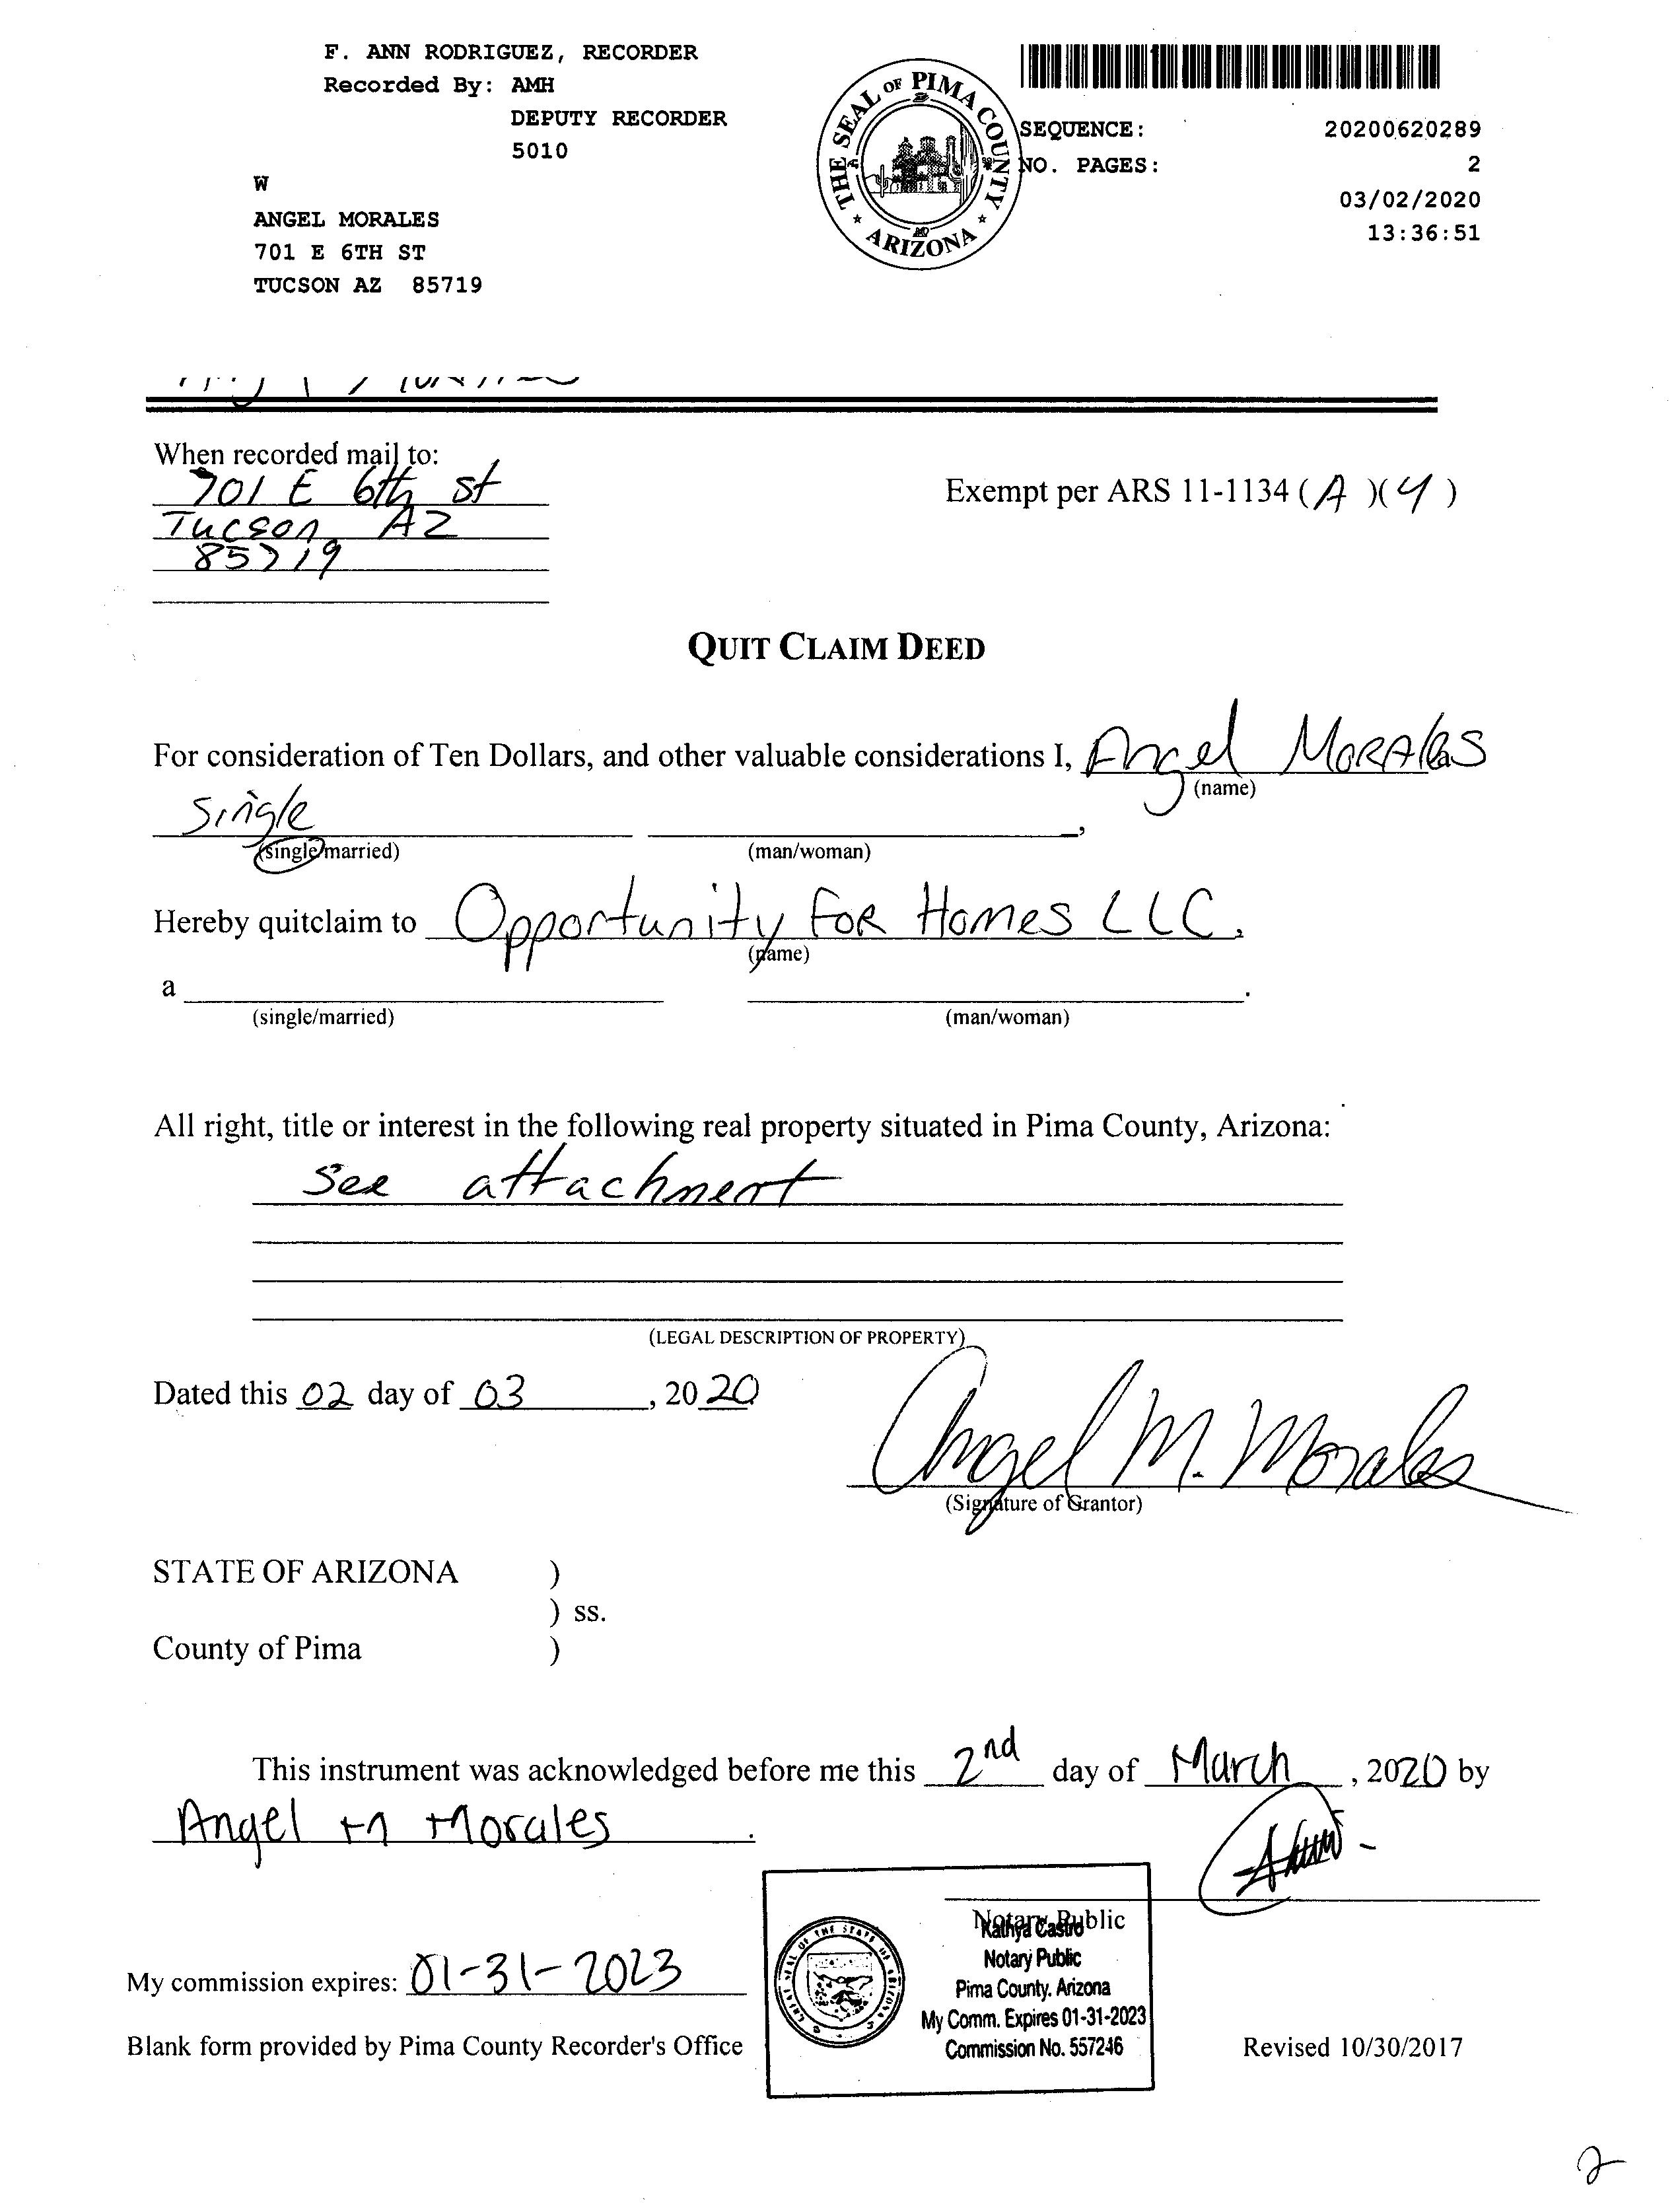 F. ANN RODRIGUEZ, RECORDER
Recorded By: AMH
DEPUTY RECORDER
5010
W
ANGEL MORALES
701 E 6TH ST
TUCSON AZ 85719
THE SEAL OF PIMA COUNTY
ARIZONA
SEQUENCE: 20200620289
NO. PAGES: 2
03/02/2020
13:36:51
When recorded mail to:
701 E 6th st
Tucson, AZ
85719
Exempt per ARS 11-1134 ( A )( 4 )
QUIT CLAIM DEED
For consideration of Ten Dollars, and other valuable considerations I, Angel Morales
(name)
Single ,
(single/married) (man/woman)
Hereby quitclaim to Opportunity For Homes LLC,
(name)
a .
(single/married) (man/woman)
All right, title or interest in the following real property situated in Pima County, Arizona:
See attachment
(LEGAL DESCRIPTION OF PROPERTY)
Dated this 02 day of 03 , 20 20
Angel M. Morales
(Signature of Grantor)
STATE OF ARIZONA )
) ss.
County of Pima )
This instrument was acknowledged before me this 2nd day of March , 2020 by
Angel M Morales .
Notary Public
Kathya Castro
Notary Public
Pima County, Arizona
My Comm. Expires 01-31-2023
Commission No. 557246
My commission expires: 01-31-2023
Blank form provided by Pima County Recorder's Office
Revised 10/30/2017
2